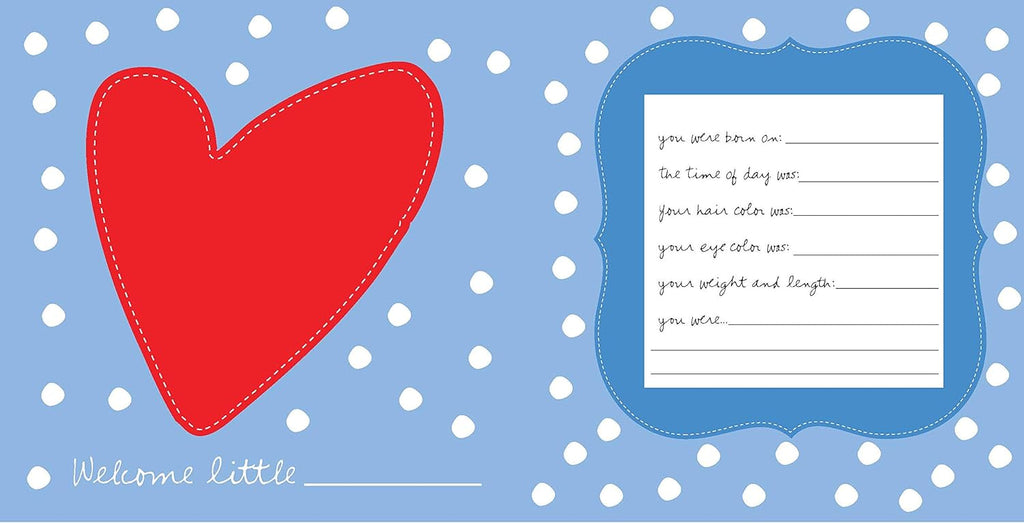 Welcome little
you were born on:
the time of day was:
your hair color was:
your eye color was:
your weight and length:
you were...